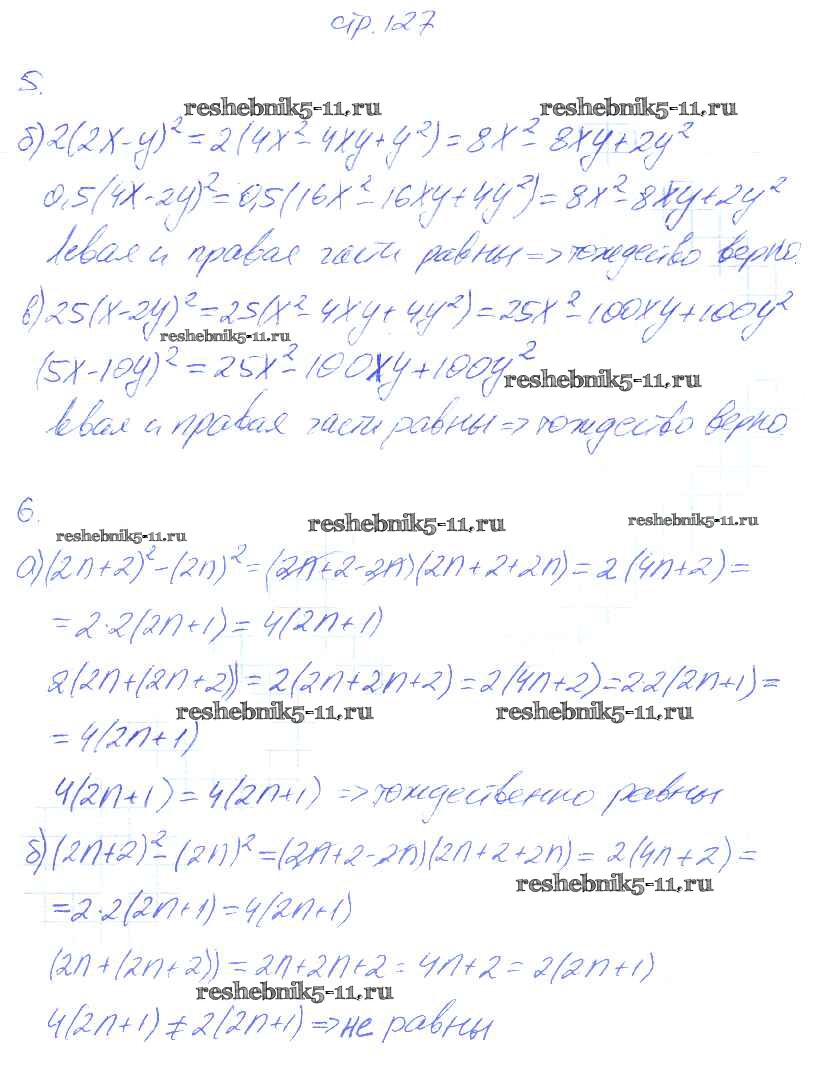 стр. 127
5.
reshebnik5-11.ru reshebnik5-11.ru
б) 2(2x-y)² = 2(4x²-4xy+y²) = 8x²-8xy+2y²
0,5(4x-2y)² = 0,5(16x²-16xy+4y²) = 8x²-8xy+2y²
левая и правая части равны => тождество верно.
в) 25(x-2y)² = 25(x²-4xy+4y²) = 25x²-100xy+100y²
reshebnik5-11.ru
(5x-10y)² = 25x²-100xy+100y²
reshebnik5-11.ru
левая и правая части равны => тождество верно.
6.
reshebnik5-11.ru reshebnik5-11.ru reshebnik5-11.ru
а) (2n+2)²-(2n)² = (2n+2-2n)(2n+2+2n) = 2(4n+2) =
= 2·2(2n+1) = 4(2n+1)
2(2n+(2n+2)) = 2(2n+2n+2) = 2(4n+2) = 2·2(2n+1) =
reshebnik5-11.ru reshebnik5-11.ru
= 4(2n+1)
4(2n+1) = 4(2n+1) => тождественно равны
б) (2n+2)²-(2n)² = (2n+2-2n)(2n+2+2n) = 2(4n+2) =
reshebnik5-11.ru
= 2·2(2n+1) = 4(2n+1)
(2n+(2n+2)) = 2n+2n+2 = 4n+2 = 2(2n+1)
reshebnik5-11.ru
4(2n+1) ≠ 2(2n+1) => не равны